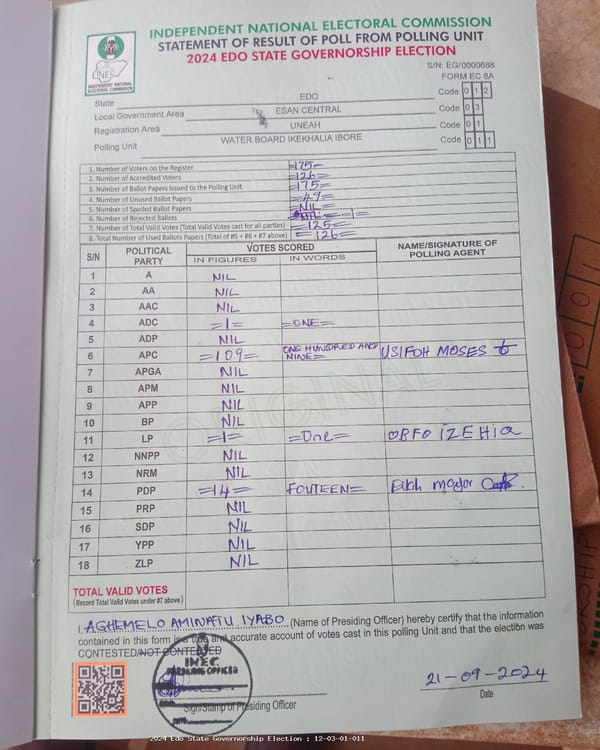 INDEPENDENT NATIONAL ELECTORAL COMMISSION
STATEMENT OF RESULT OF POLL FROM POLLING UNIT
2024 EDO STATE GOVERNORSHIP ELECTION
INEC
INDEPENDENT NATIONAL
ELECTORAL COMMISSION
S/N: EG/0000688
FORM EC 8A
State EDO Code 0 1 2
Local Government Area ESAN CENTRAL Code 0 3
Registration Area UNEAH Code 0 1
Polling Unit WATER BOARD IKEKHALIA IBORE Code 0 1 1
1. Number of Voters on the Register =175=
2. Number of Accredited Voters =126=
3. Number of Ballot Papers Issued to the Polling Unit =175=
4. Number of Unused Ballot Papers =49=
5. Number of Spoiled Ballot Papers =NIL=
6. Number of Rejected Ballots =1=
7. Number of Total Valid Votes (Total Valid Votes cast for all parties) =125=
8. Total Number of Used Ballots Papers (Total of #5 + #6 + #7 above) =126=
S/N POLITICAL PARTY VOTES SCORED NAME/SIGNATURE OF POLLING AGENT
IN FIGURES IN WORDS
1 A NIL
2 AA NIL
3 AAC NIL
4 ADC =1= =ONE=
5 ADP NIL
6 APC =109= ONE HUNDRED AND NINE= USIFOH MOSES
7 APGA NIL
8 APM NIL
9 APP NIL
10 BP NIL
11 LP =1= =One= OBFO IZEHIA
12 NNPP NIL
13 NRM NIL
14 PDP =14= FOUTEEN= major
15 PRP NIL
16 SDP NIL
17 YPP NIL
18 ZLP NIL
ORIGINAL
TOTAL VALID VOTES
(Record Total Valid Votes under #7 above)
I, AGHEMELO AMINATU IYABO (Name of Presiding Officer) hereby certify that the information
contained in this form is a true and accurate account of votes cast in this polling Unit and that the election was
CONTESTED/NOT CONTESTED
INEC
PRESIDING OFFICER
Sign/Stamp of Presiding Officer
21-09-2024
Date
2024 Edo State Governorship Election : 12-03-01-011